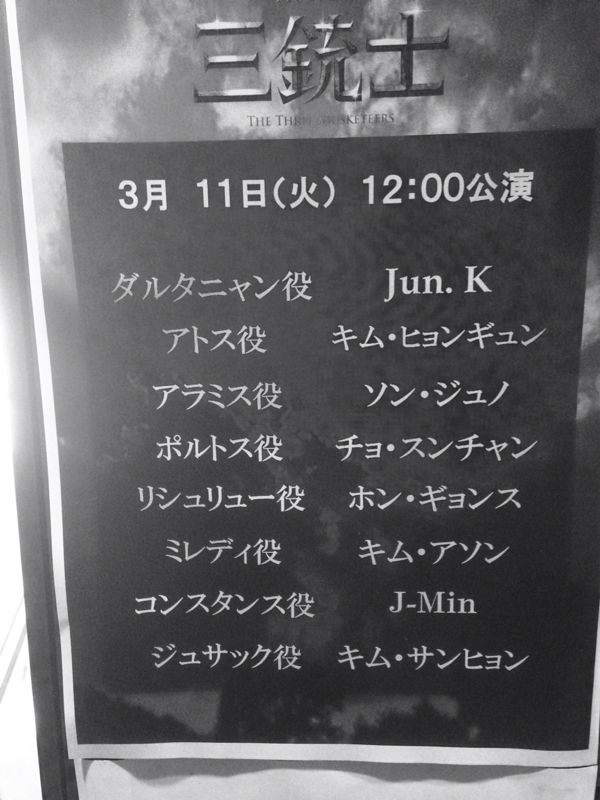 三銃士
THE THREE MUSKETEERS
3月 11日(火) 12:00公演
ダルタニャン役 Jun. K
アトス役 キム・ヒョンギュン
アラミス役 ソン・ジュノ
ポルトス役 チョ・スンチャン
リシュリュー役 ホン・ギョンス
ミレディ役 キム・アソン
コンスタンス役 J-Min
ジュサック役 キム・サンヒョン